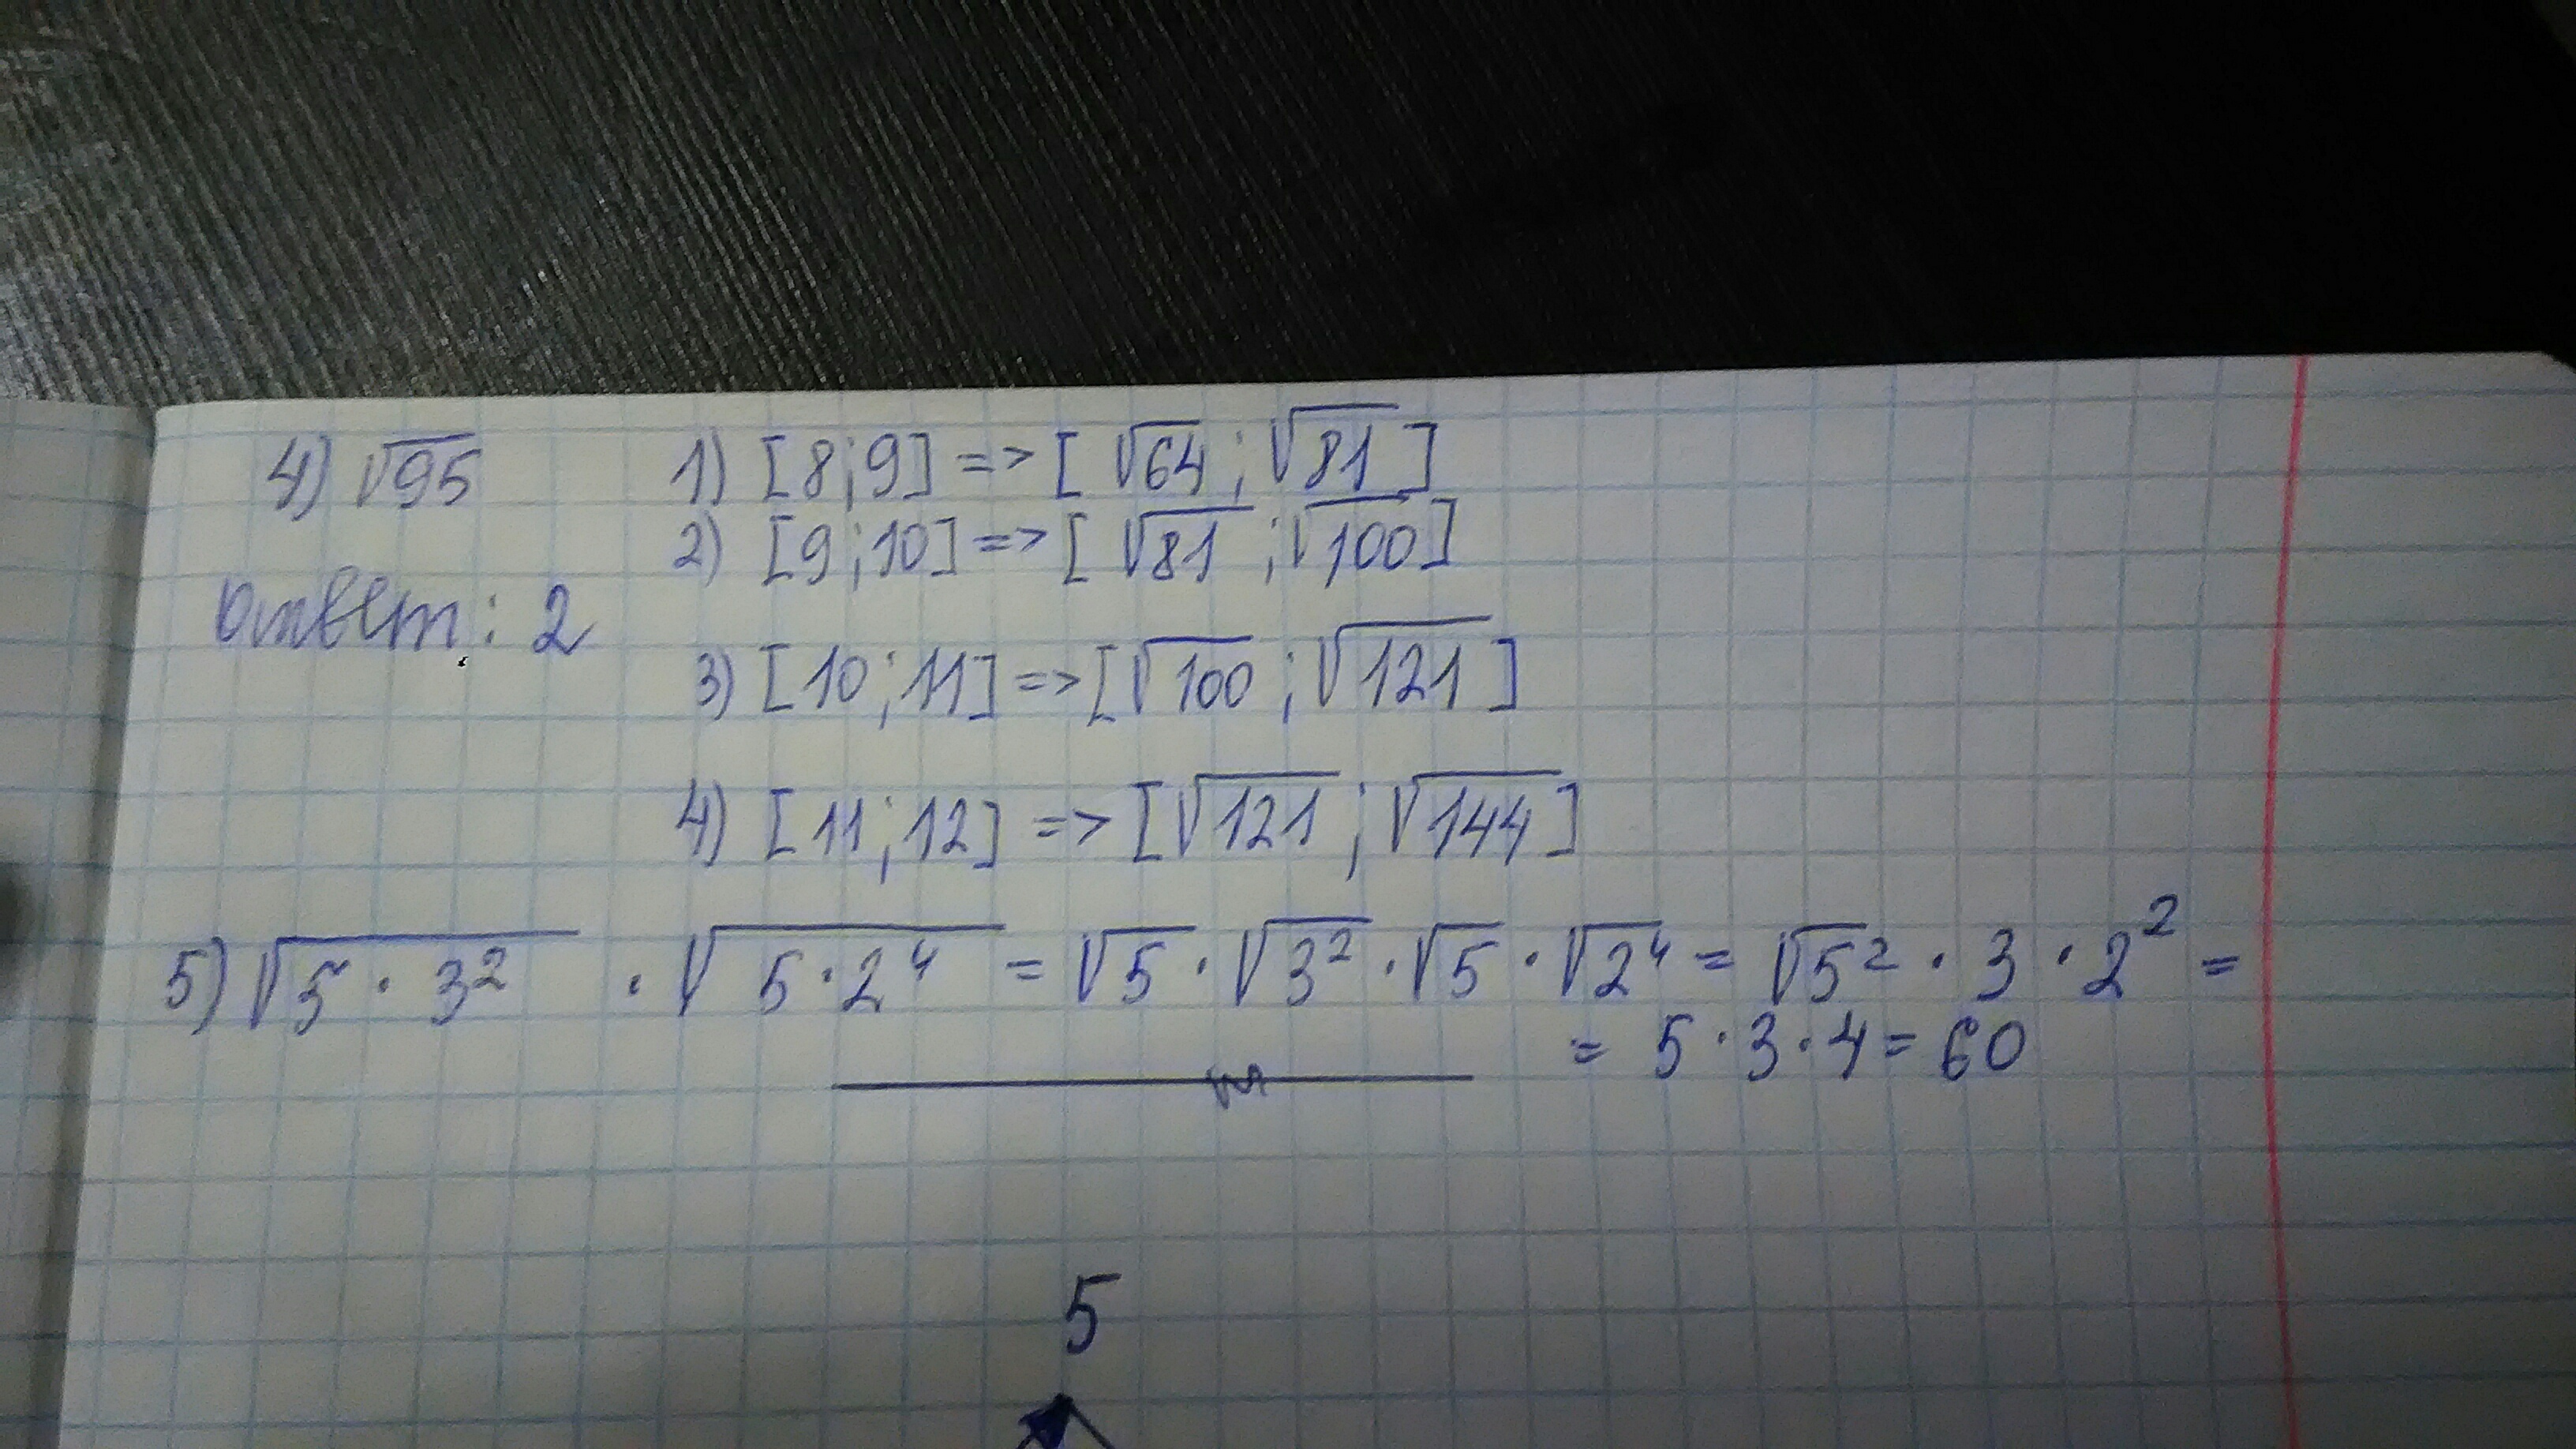 4) √95 1) [8;9] => [√64; √81]
2) [9;10] => [√81; √100]
Ответ: 2
3) [10;11] => [√100; √121]
4) [11;12] => [√121; √144]
5) √5·3² · √5·2⁴ = √5 · √3² · √5 · √2⁴ = √5² · 3 · 2² =
= 5·3·4 = 60
5